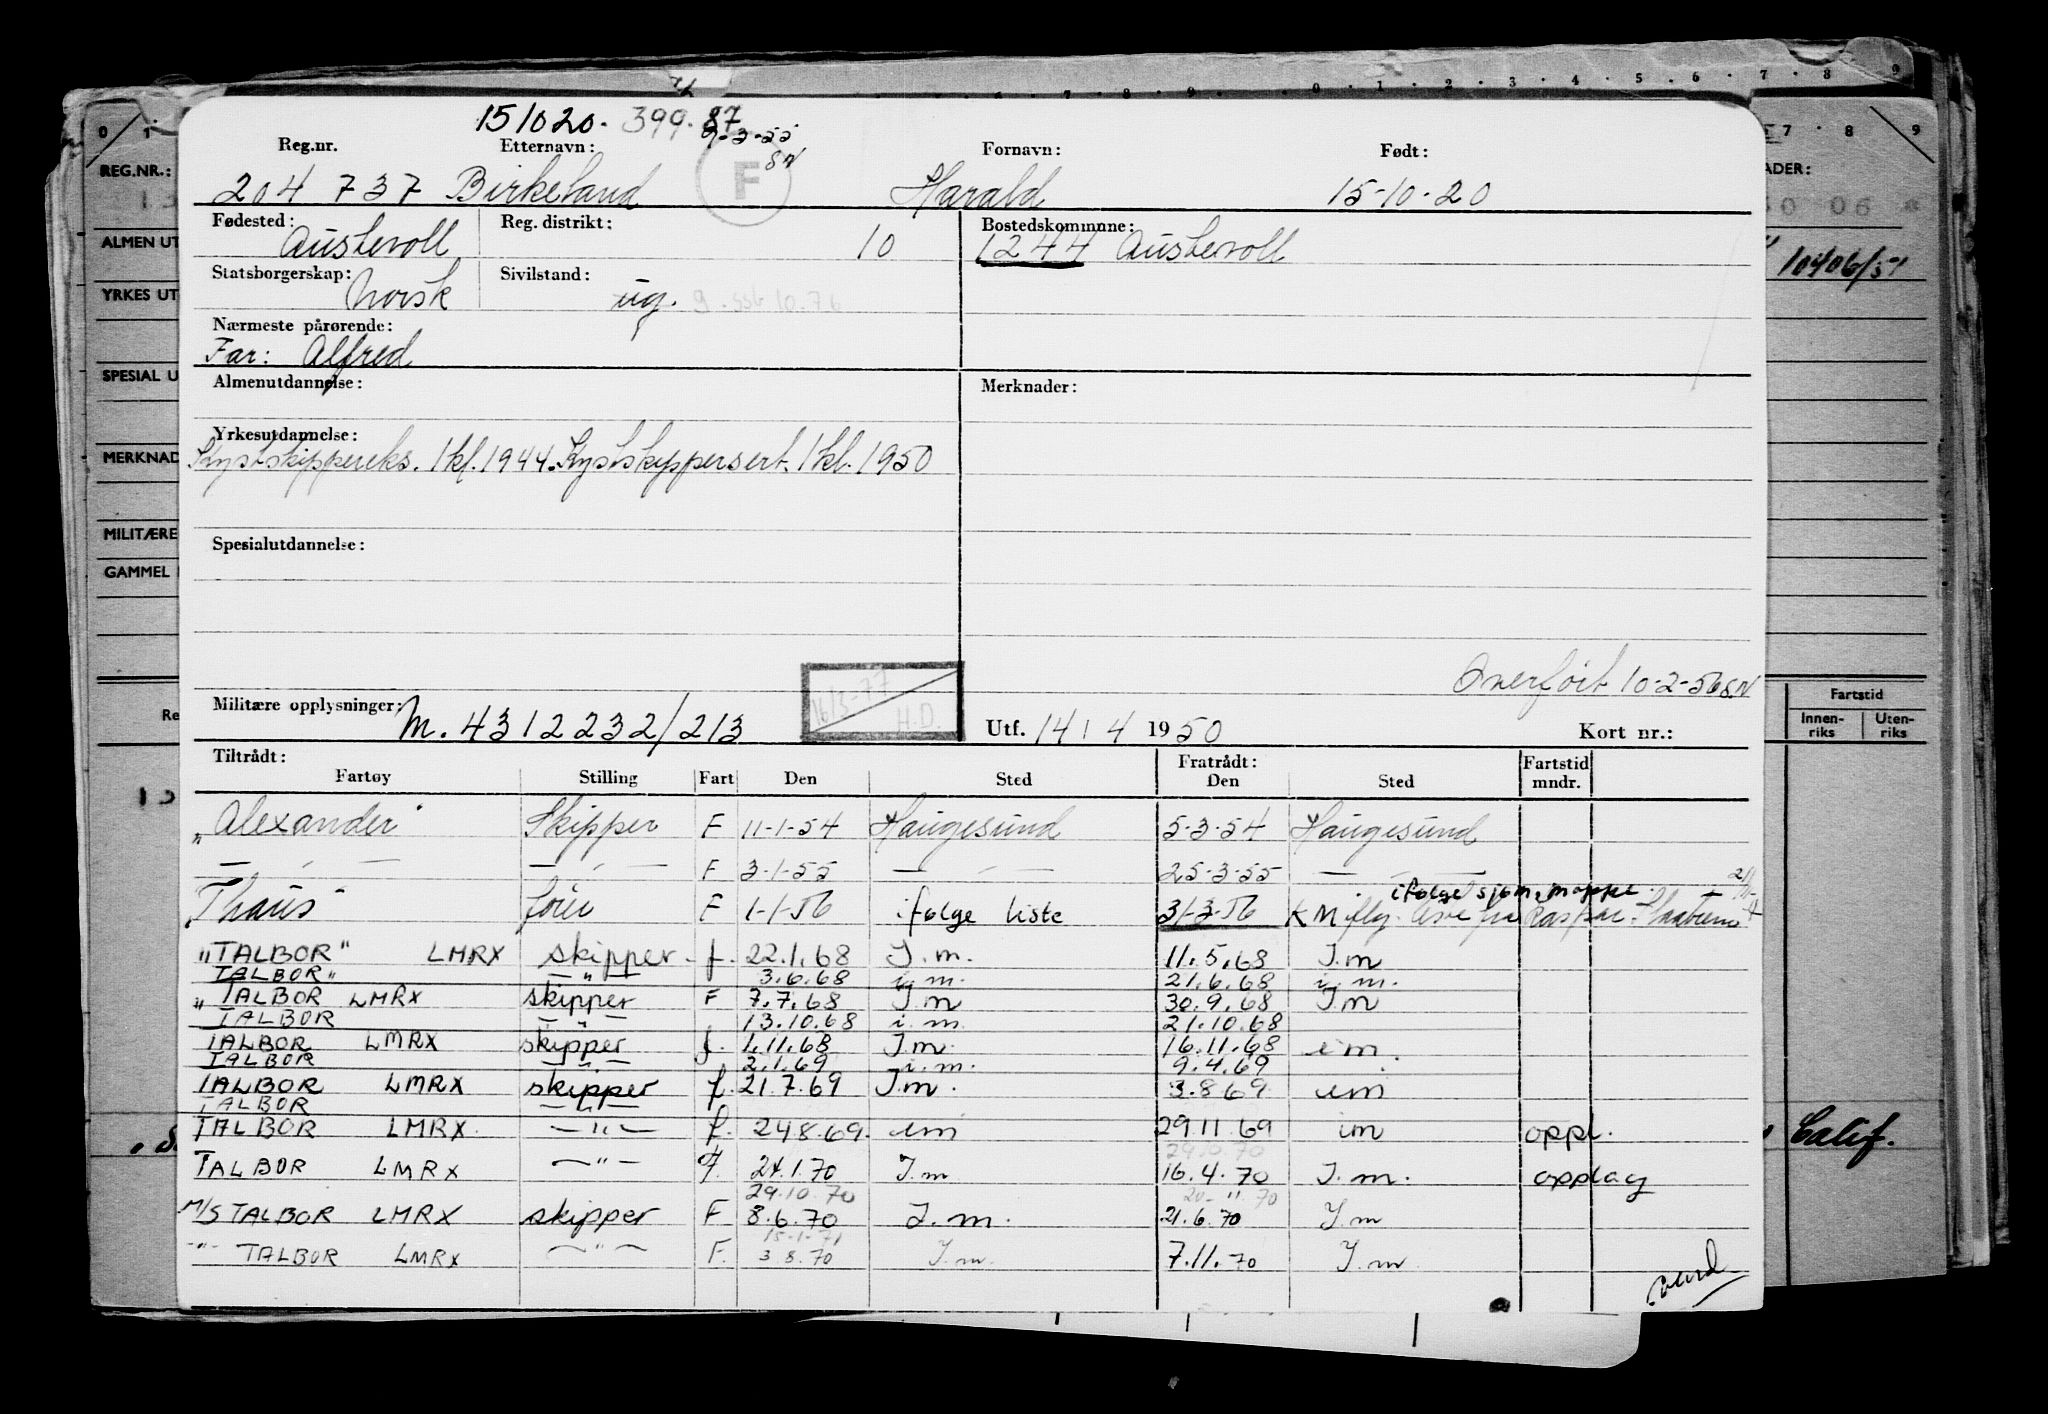 0 1 2 3 4 5 6 7 8 9
0 1 7 8 9
REG.NR.:
ALMEN UT
YRKES UT
SPESIAL U
MERKNAD
MILITÆRE
GAMMEL
ADER:
50 06
10406/51
Re
Fartstid
Innen-
riks
Uten-
riks
Calif.
151020. 399.87
9-3-55
SN
F
Reg.nr. Etternavn: Fornavn: Født:
204 737 Birkeland Harald 15-10-20
Fødested: Reg. distrikt: Bostedskommune:
Austevoll 10 1244 Austevoll
Statsborgerskap: Sivilstand:
Norsk ug. g. ssb 10.76
Nærmeste pårørende:
Far: Alfred
Almenutdannelse: Merknader:
Yrkesutdannelse:
Kystskippereks. 1kl. 1944. Kystskippersert. 1kl. 1950
Spesialutdannelse:
Overført 10-2-56 S.N
16/3-77
H.D.
Militære opplysninger: M. 4312232/213 Utf. 14/4 1950 Kort nr.:
Tiltrådt: Fratrådt: Fartstid
Fartøy Stilling Fart Den Sted Den Sted mndr.
"Alexander" Skipper F 11-1-54 Haugesund 5-3-54 Haugesund
— " — — " — F 3-1-55 — " — 25-3-55 — " —
ifølge sjøm. mappe
"Thaus" fører F 1-1-56 ifølge liste 31-3-56
"TALBOR" LMRX skipper f. 22.1.68 I.m. 11.5.68 I.m
TALBOR" — " — 3.6.68 i.m. 21.6.68 i.m.
"TALBOR LMRX skipper F 7.7.68 I.m 30.9.68 I.m
TALBOR — " — 13.10.68 i.m. 21.10.68
TALBOR LMRX skipper f. 1.11.68 I.m. 16.11.68 im.
TALBOR — " — 2.1.69 i.m. 9.4.69
TALBOR LMRX skipper f. 21.7.69 I.m. 3.8.69. im
TALBOR — " —
TALBOR LMRX. — " — f. 24.8.69. im 29.11.69 im oppl.
29.10.70
TALBOR LMRX — " — f. 24.1.70 I.m 16.4.70 I.m. opplag
29.10.70 20-11.70
M/S TALBOR LMRX skipper F 8.6.70 I.m. 21.6.70 I.m
15-1-71
— " — TALBOR LMRX — " — F. 3 8.70 I.m. 7.11.70 I.m.
vend